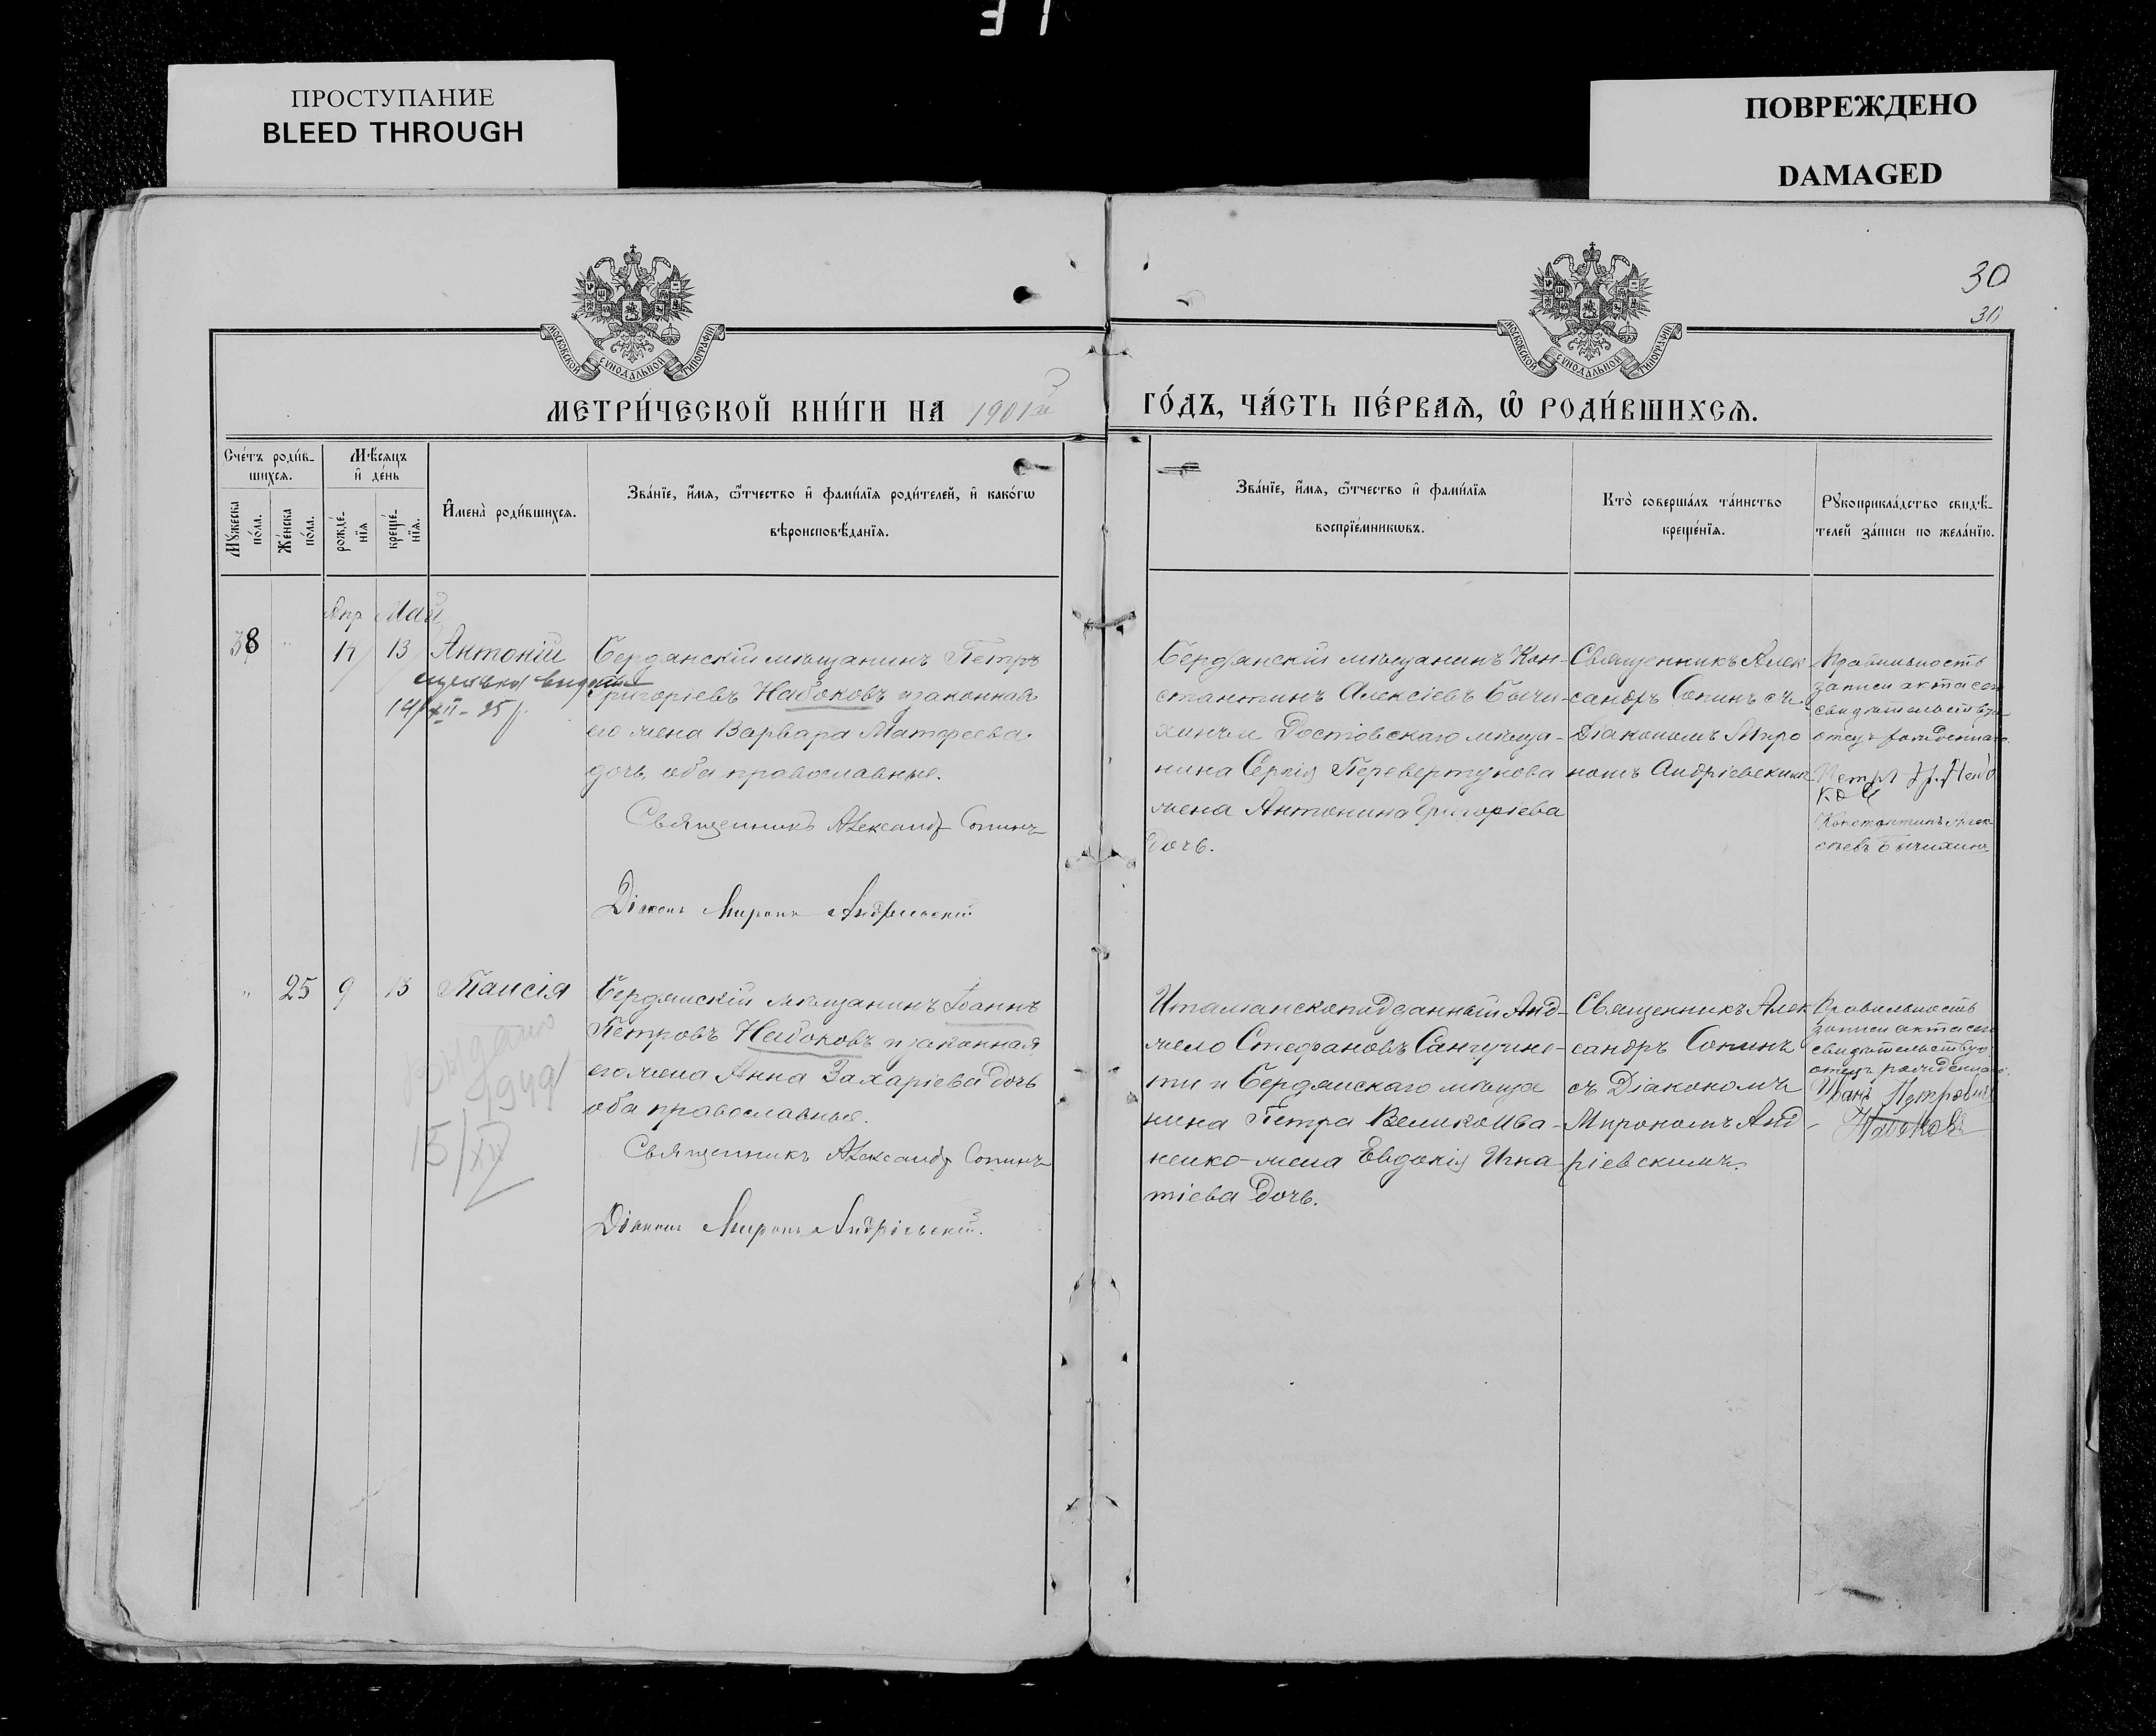 ПРОСТУПАНИЕ
BLEED THROUGH
ПОВРЕЖДЕНО
DAMAGED
30
МОСКОВСКОЙ СѴНОДАЛЬНОЙ ТИПОГРАФІИ
МОСКОВСКОЙ СѴНОДАЛЬНОЙ ТИПОГРАФІИ
МЕТРИ́ЧЕСКОЙ КНИ́ГИ НА 1901й
ГО́ДЪ, ЧА́СТЬ ПЕ́РВАѦ, Ѡ҆ РОДИ́ВШИХСѦ.
Сче́тъ роди́в-
шихсѧ.
Мѣ́сѧцъ
и҆ де́нь
Мꙋ́жеска
по́ла.
Же́нска
по́ла.
рожде́-
нїѧ
креще́-
нїѧ.
И҆мена̀ роди́вшихсѧ.
Зва́нїе, и҆́мѧ, ѻ҆́тчество и҆ фами́лїѧ роди́телей, и҆ како́гѡ
вѣроисповѣ́данїѧ.
Зва́нїе, и҆́мѧ, ѻ҆́тчество и҆ фами́лїѧ
воспрїе́мникѡвъ.
Кто̀ соверша́лъ та́инство
креще́нїѧ.
Рꙋкоприкла́дство свидѣ́-
телей за́писи по жела́нїю.
Апр Май
38 " 14 13 Антоній
14/XII-25 г.
Бердянскій мѣщанинъ Петръ
Григоріевъ Набоковъ и законная
его жена Варвара Матѳеева
дочь, оба православные.
Священникъ Александр Сопинъ
Діаконъ Миронъ Андріевскій
Бердянскій мѣщанинъ Кон-
стантинъ Алексіевъ Бычи-
хинъ и Ростовскаго мѣща-
нина Сергія Перевертунова
жена Антонина Григоріева
дочь.
Священникъ Алек-
сандръ Сопинъ съ
Діакономъ Миро
номъ Андріевскимъ
Правильность
записи акта сей
свидѣтельствую
отецъ рожденнаго
Петръ Гр. Набо
ков
Константинъ Алек-
сѣевъ Бычихинъ
" 25 9 13 Таисія
Выдано
1949
15/XII
Бердянскій мѣщанинъ Іоаннъ
Петровъ Набоковъ и законная
его жена Анна Захаріева дочь
оба православные.
Священникъ Александр Сопинъ
Діаконъ Миронъ Андріевскій.
Италіанскоподданный Анд-
жело Стефановъ Сангуине-
ти и Бердянскаго мѣща
нина Петра Великоива-
ненко-жена Евдокія Игна
тіева дочь.
Священникъ Алек
сандръ Сопинъ
съ Діакономъ
Мирономъ Анд-
ріевскимъ.
Правильность
записи акта сей
свидѣтельствую
отецъ рожденнаго.
Иванъ Петровичъ
Набоковъ